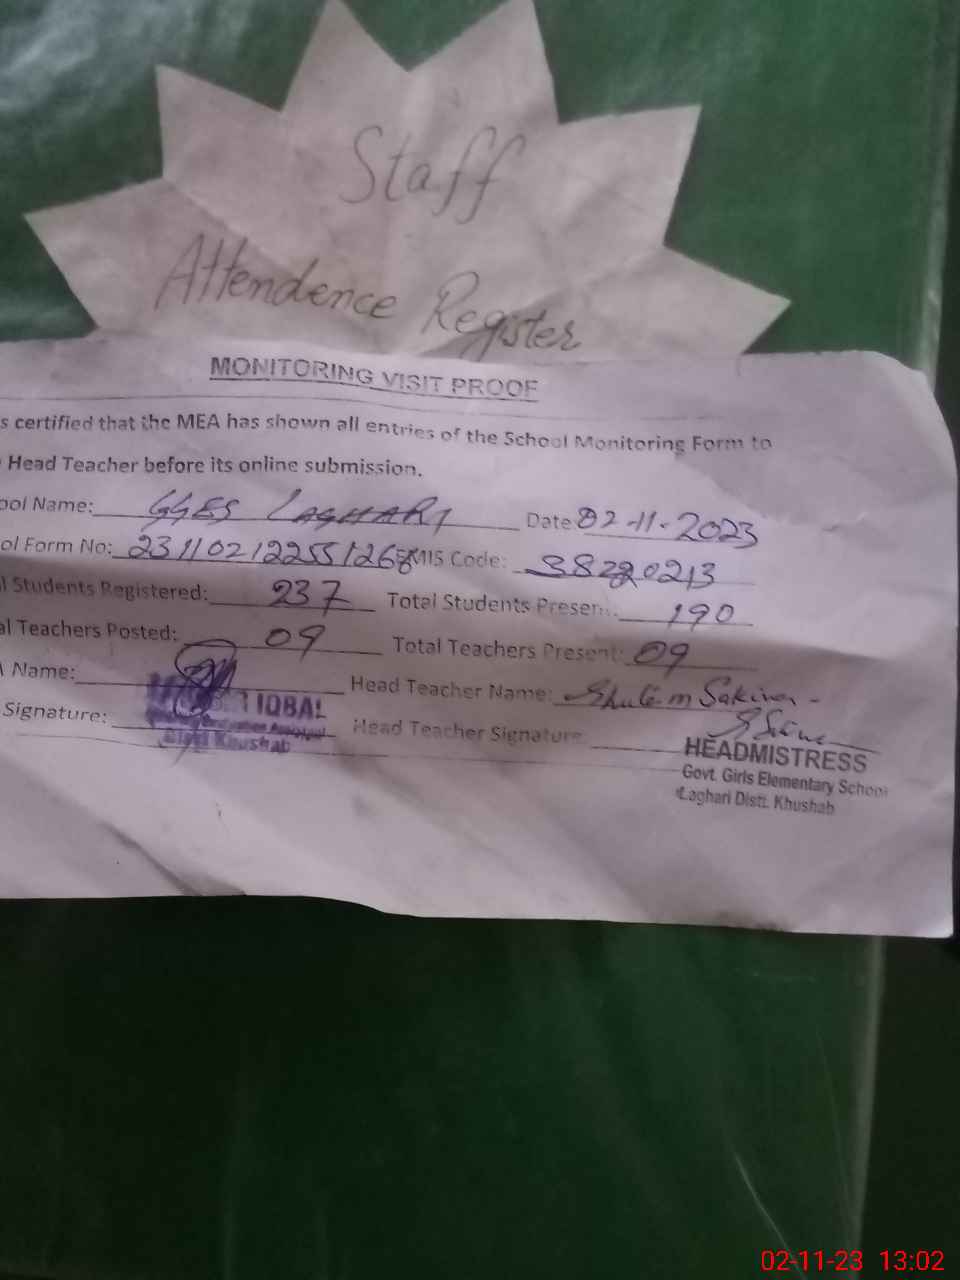 Staff
Attendence Register
MONITORING VISIT PROOF
s certified that the MEA has shown all entries of the School Monitoring Form to
Head Teacher before its online submission.
ool Name: GGES LAGHARI Date 02-11-2023
ol Form No: 231102122551268 EMIS Code: 38220213
l Students Registered: 237 Total Students Present: 190
al Teachers Posted: 09 Total Teachers Present: 09
A Name: Head Teacher Name: Sakina
IQBAL
Signature: Head Teacher Signature:
Distt Khushab
HEADMISTRESS
Govt. Girls Elementary School
Laghari Distt. Khushab
02-11-23 13:02